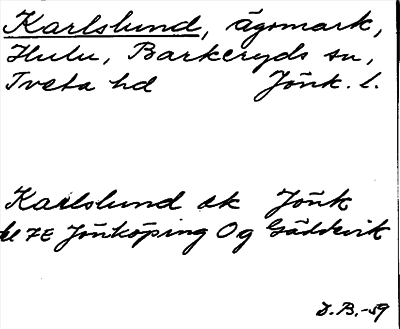 Karlslund, ägomark,
Hulu, Barkeryds sn,
Tveta hd Jönk. l.
Karlslund ek Jönk
bl 7E Jönköping Og Gäddvik
D.B.-59